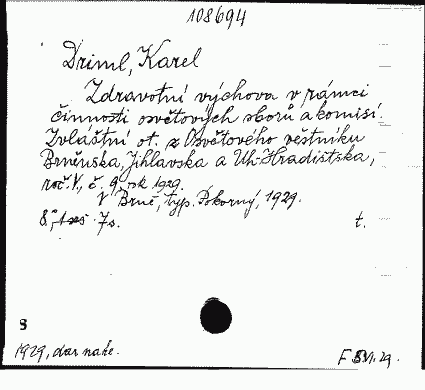 108694
Driml, Karel
Zdravotní výchova v rámci
činnosti osvětových sborů a komisí.
Zvláštní ot. z Osvětového věstníku
Brněnska, Jihlavska a Uh.-Hradištska,
roč. V., č. 9, rok 1929.
V Brně, typ. Pokorný, 1929.
8°, 7 s.
t.
S
1929, dar nakl.